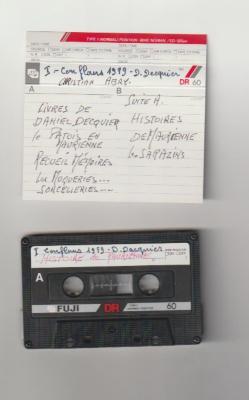 TYPE I (NORMAL) POSITION
I - Conflans 1979 - D. Dacquier
CRISTIAN ABRY.
DR 60
A
B
LIVRES DE
DANIEL DECQUIER
le PATOIS EN
MAURIENNE
RECUEIL MÉMOIRES
Les MOQUERIES....
SORCELLERIES....
SUITE A.
HISTOIRES
DE MAURIENNE
les SARAZINS
I Conflans 1979 - D. Dacquier
HISTOIRE de MAURIENNE.
A
FUJI
DR
60